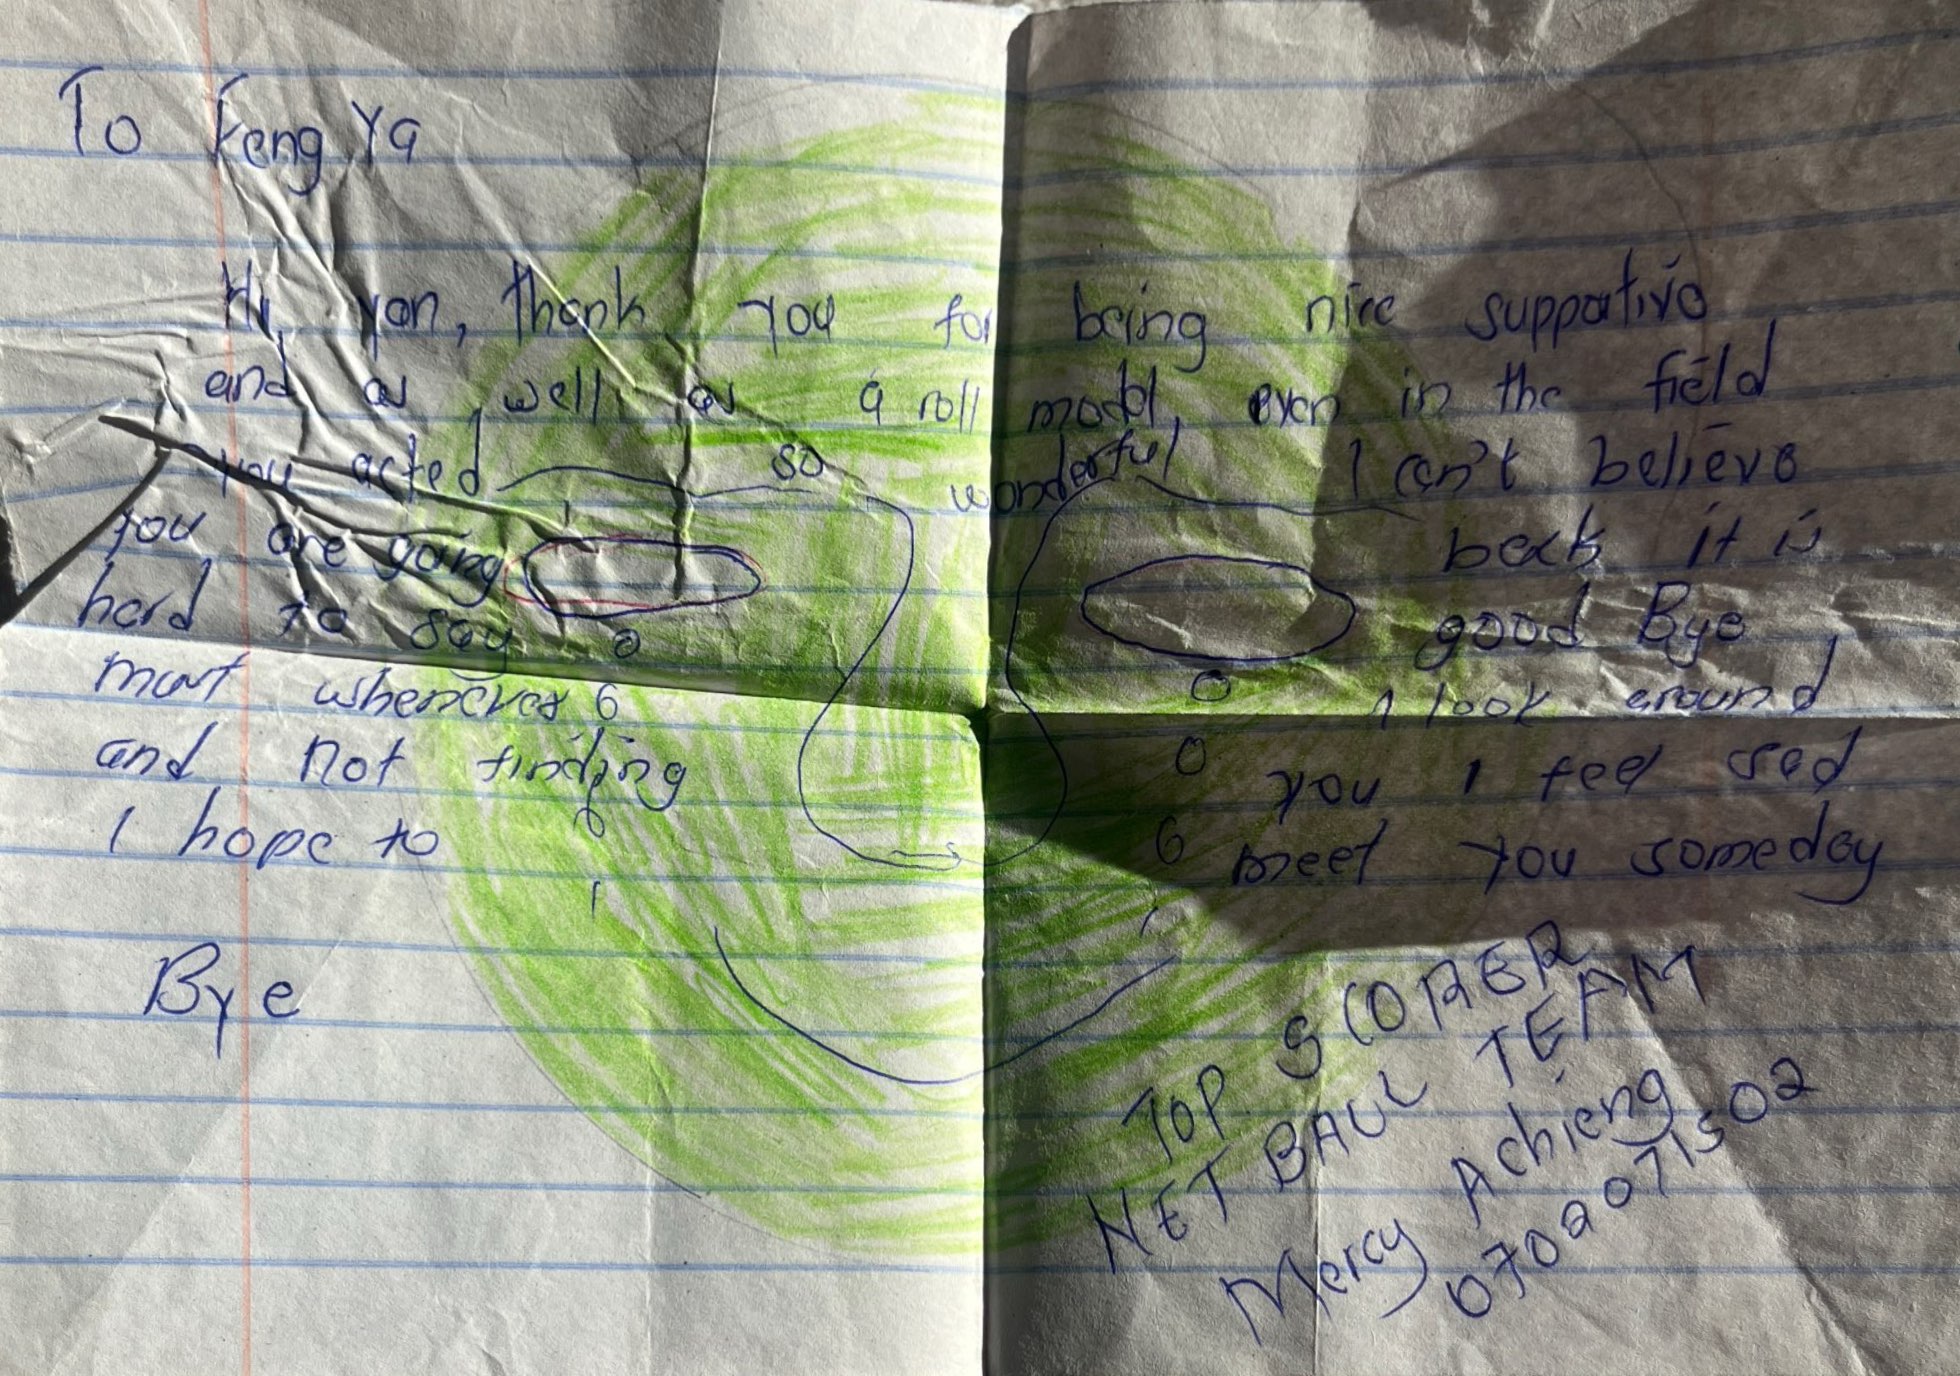 To Feng Ya
Hi, yan, thank you for being nice supportive
and as well as a roll model, even in the field
you acted so wonderful I can't believe
you are going back it is
hard to say good Bye
must whenever I look around
and not finding you I feel sad
I hope to meet you someday
Bye
TOP SCORER
NET BALL TEAM
Mercy Achieng